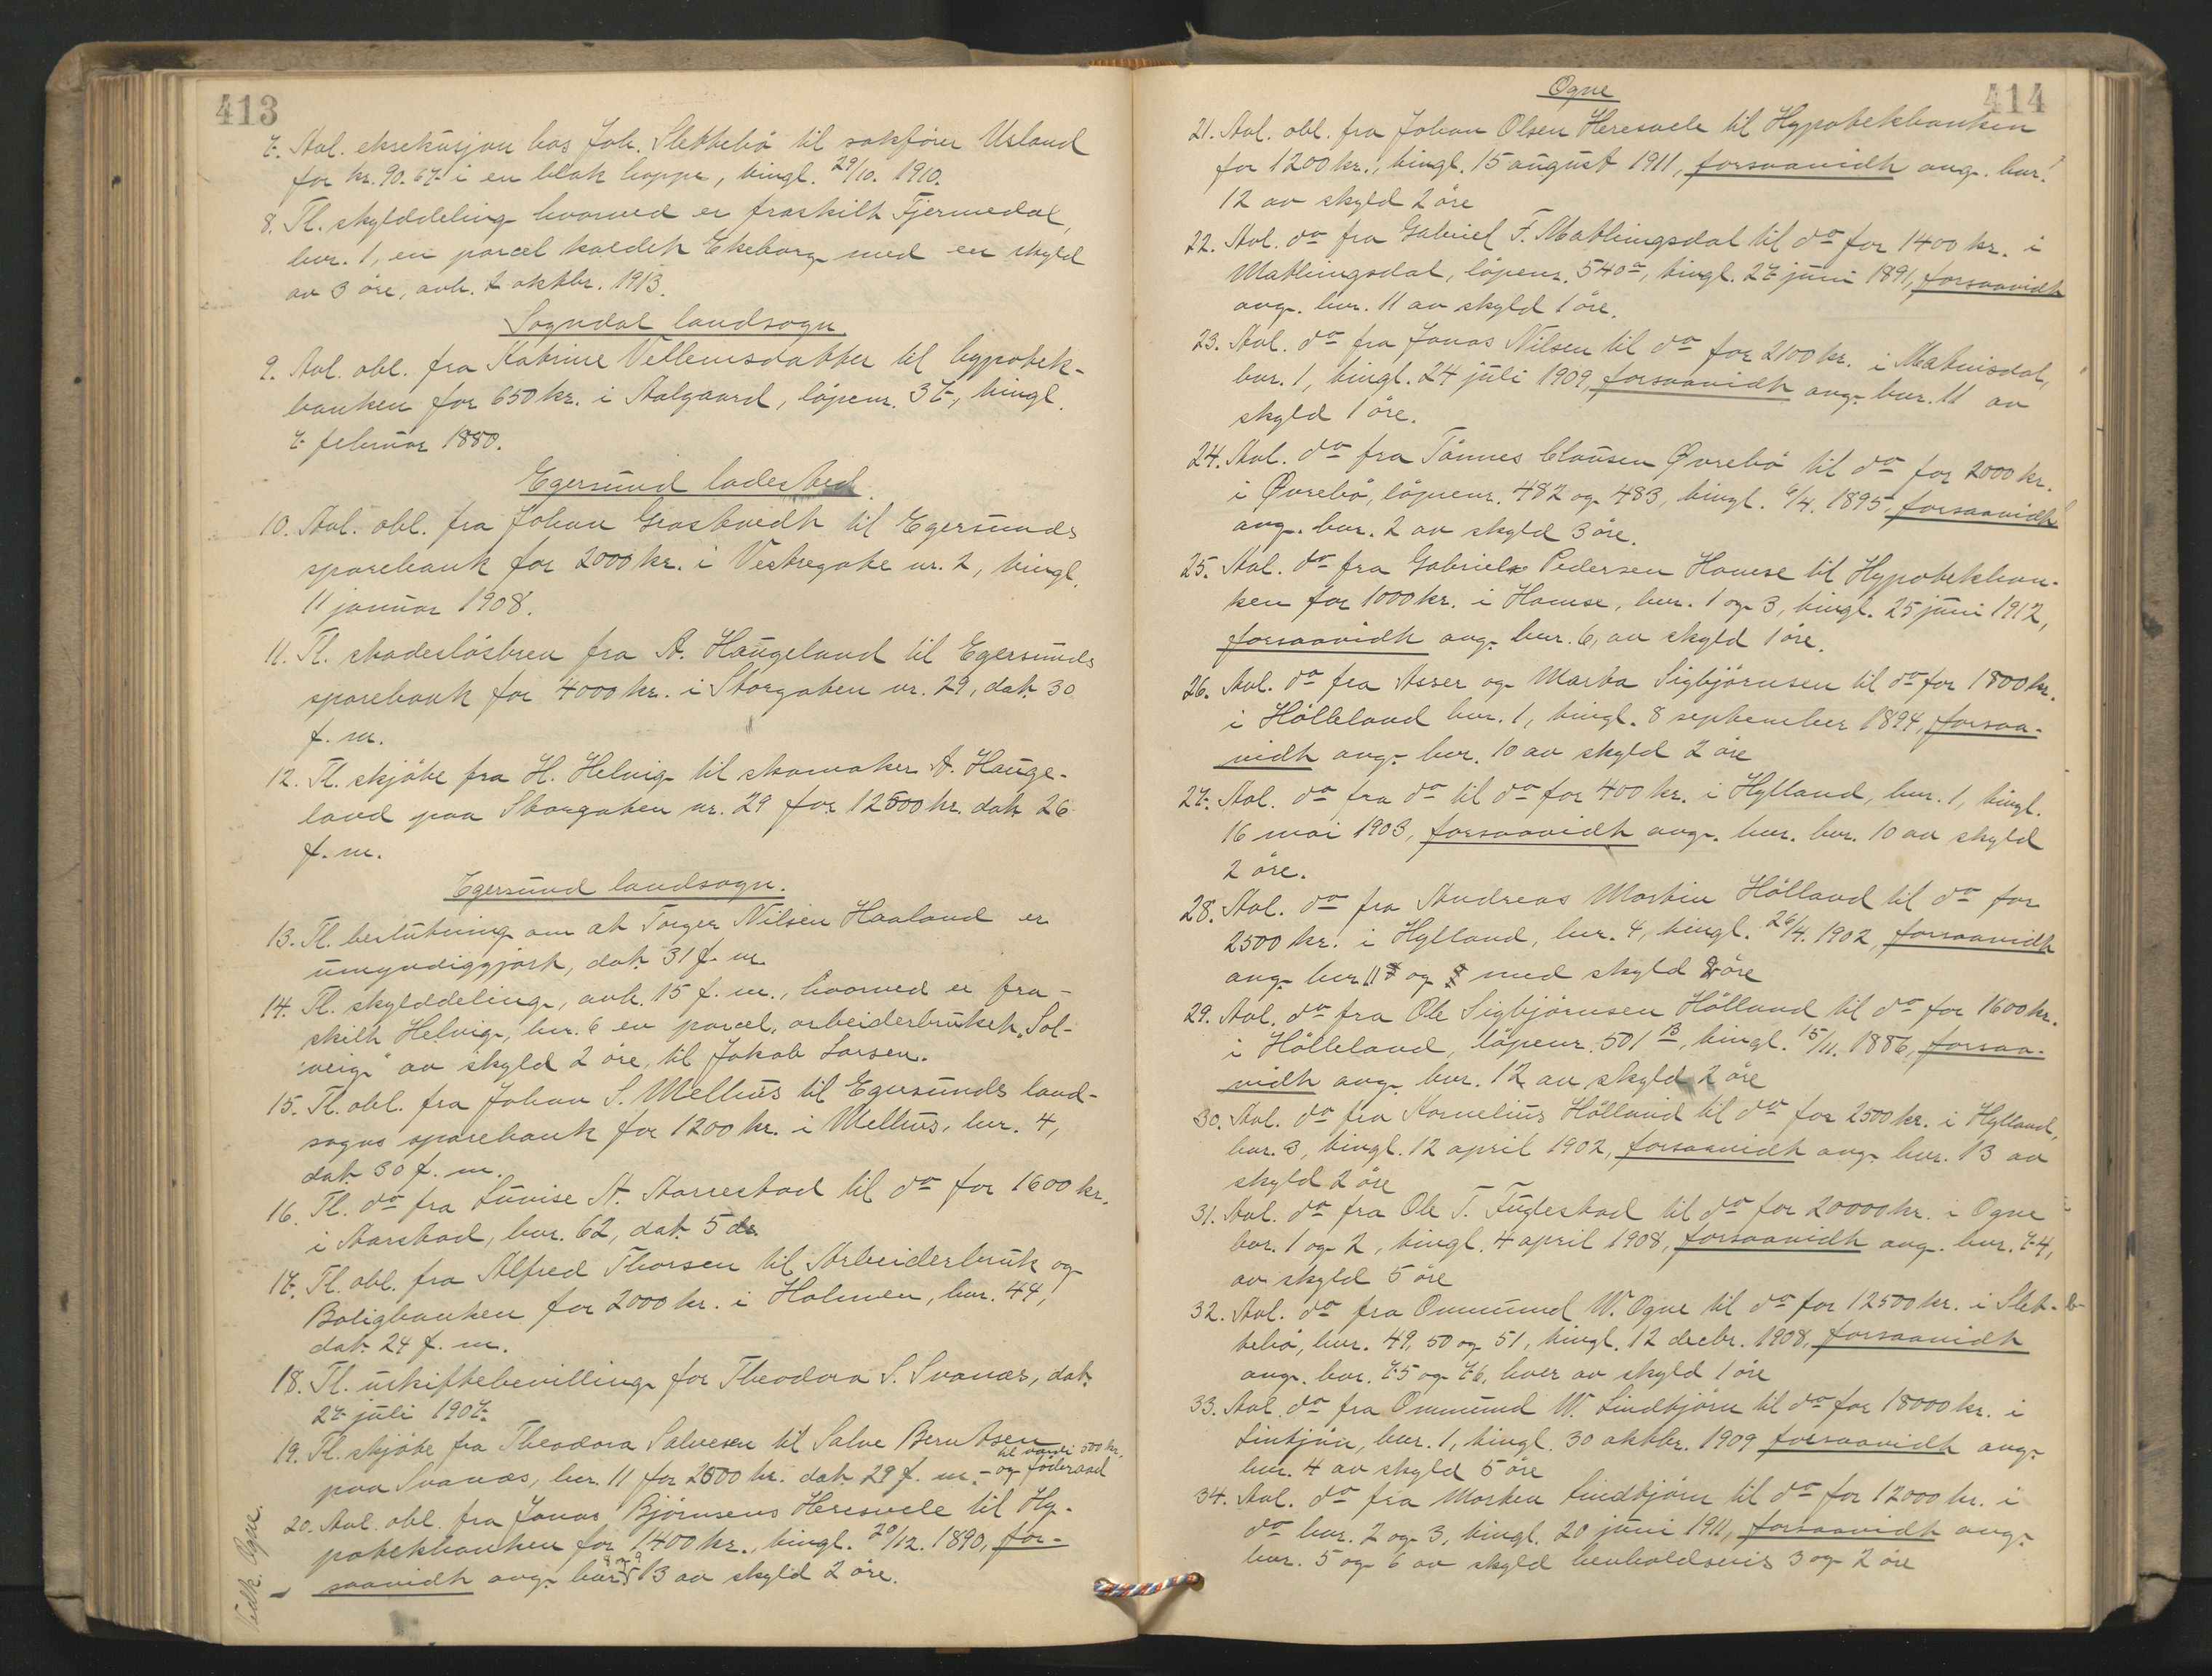 413
7. Avl. eksekusjon hos Joh. Slettebö til sakförer Usland
for kr. 90.67 i en blak hoppe, tingl. 29/10. 1910.
8. Tl. skylddeling hvorved er fraskilt Tjermedal,
bnr. 1, en parcel kaldet Ekeborg med en skyld
av 3 öre, avh. 2 oktbr. 1913.
Sogndal landsogn.
9. Avl. obl. fra Katrine Vellemsdatter til hypotek-
banken for 650 kr. i Aalgaard, löpenr. 37, tingl.
7 februar 1880.
Egersund ladested.
10. Avl. obl. fra Johan Grastveidt til Egersunds
sparebank for 2000 kr. i Vestregate nr. 2, tingl.
11 januar 1908.
11. Tl. skadeslösbrev fra A. Haugeland til Egersunds
sparebank for 4000 kr. i Storgaten nr. 29, dat. 30
f. m.
12. Tl. skjöte fra H. Helvig til skomaker A. Hauge-
land paa Storgaten nr. 29 for 12500 kr. dat 26
f. m.
Egersund landsogn.
13. Tl. beslutning om at Torger Nilsen Haaland er
umyndiggjort, dat. 31 f. m.
14. Tl. skylddeling, avh. 15 f. m., hvorved er fra-
skilt Helvig, bnr. 6 en parcel, arbeiderbruket „Sol-
veig" av skyld 2 öre, til Jakob Larsen.
15. Tl. obl. fra Johan S. Mellus til Egersunds land-
sogns sparebank for 1200 kr. i Mellus, bnr. 4,
dat. 30 f. m.
16. Tl. do fra Lovise A. Aarrestad til do for 1600 kr.
i Aarstad, bnr. 62, dat. 5 ds
17. Tl. obl. fra Alfred Thorsen til Arbeiderbruk og
Boligbanken for 2000 kr. i Holmen, bnr. 44,
dat. 24 f. m.
18. Tl. uskiftebevilling for Theodora S. Svanæs, dat.
27 juli 1907.
19. Tl. skjöte fra Theodora Salvesen til Salve Berntsen
til værdi 500 kr.
paa Svanæs, bnr. 11 for 2500 kr. dat. 29 f. m. - og föderaad
20. Avl. obl. fra Jonas Björnsens Heresvele til Hy-
potekbanken for 1400 kr., tingl. 20/12. 1890, for-
8 og 9
saavidt ang. bnr 13 av skyld 2 öre.
Vedk. Ogne.
414
Ogne
21. Avl. obl. fra Johan Olsen Heresvele til Hypotekbanken
for 1200 kr., tingl. 15 august 1911, forsaavidt ang. bnr.
12 av skyld 2 öre
22. Avl. do fra Gabriel F. Matlingsdal til do for 1400 kr. i
Matlingsdal, löpenr. 540a, tingl. 27 juni 1891, forsaavidt
ang. bnr. 11 av skyld 1 öre.
23. Avl. do fra Jonas Nilsen til do for 2100 kr. i Matnisdal,
bnr. 1, tingl. 24 juli 1909, forsaavidt ang. bnr. 11 av
skyld 1 öre.
24. Avl. do fra Tönnes Clausen Øvrebö til do for 2000 kr.
i Øvrebö, löpenr. 482 og 483, tingl. 6/4. 1895, forsaavidt
ang. bnr. 2 av skyld 3 öre.
25. Avl. do fra Gabriel Pedersen Homse til Hypotekban-
ken for 1000 kr. i Homse, bnr. 1 og 3, tingl. 25 juni 1912,
forsaavidt ang. bnr. 6, av skyld 1 öre.
26. Avl. do fra Asser og Marta Sigbjörnsen til do for 1800 kr.
i Hölleland bnr. 1, tingl. 8 september 1894, forsaa-
vidt ang. bnr. 10 av skyld 2 öre
27. Avl. do fra do til do for 400 kr. i Hylland, bnr. 1, tingl.
16 mai 1903, forsaavidt ang. bnr. bnr. 10 av skyld
2 öre.
28. Avl. do fra Andreas Martin Hölland til do for
2500 kr. i Hylland, bnr. 4, tingl. 26/4. 1902, forsaavidt
ang. bnr. 11 og med skyld 2 öre
29. Avl. do fra Ole Sigbjörnsen Hölland til do for 1600 kr.
i Hölleland, löpenr. 501 B, tingl. 15/11. 1886, forsaa-
vidt ang. bnr. 12 av skyld 2 öre
30. Avl. do fra Kornelius Hölland til do for 2500 kr. i Hylland,
bnr. 3, tingl. 12 april 1902, forsaavidt ang. bnr. 13 av
skyld 2 öre
31. Avl. do fra Ole T. Fuglestad til do for 20000 kr. i Ogne
bnr. 1 og 2, tingl. 4 april 1908, forsaavidt ang. bnr. 74,
av skyld 5 öre
32. Avl. do fra Ommund W. Ogne til do for 12500 kr. i Slet-
tebö, bnr. 49, 50 og 51, tingl. 12 decbr. 1908, forsaavidt
ang. bnr. 75 og 76, hver av skyld 1 öre
33. Avl. do fra Ommund W. Lindtjörn til do for 18000 kr. i
Lintjön, bnr. 1, tingl. 30 oktbr. 1909 forsaavidt ang.
bnr. 4 av skyld 5 öre
34. Avl. do fra Morten Lindtjörn til do for 12000 kr. i
do bnr. 2 og 3, tingl. 20 juni 1911, forsaavidt ang.
bnr. 5 og 6 av skyld henholdsvis 3 og 2 öre